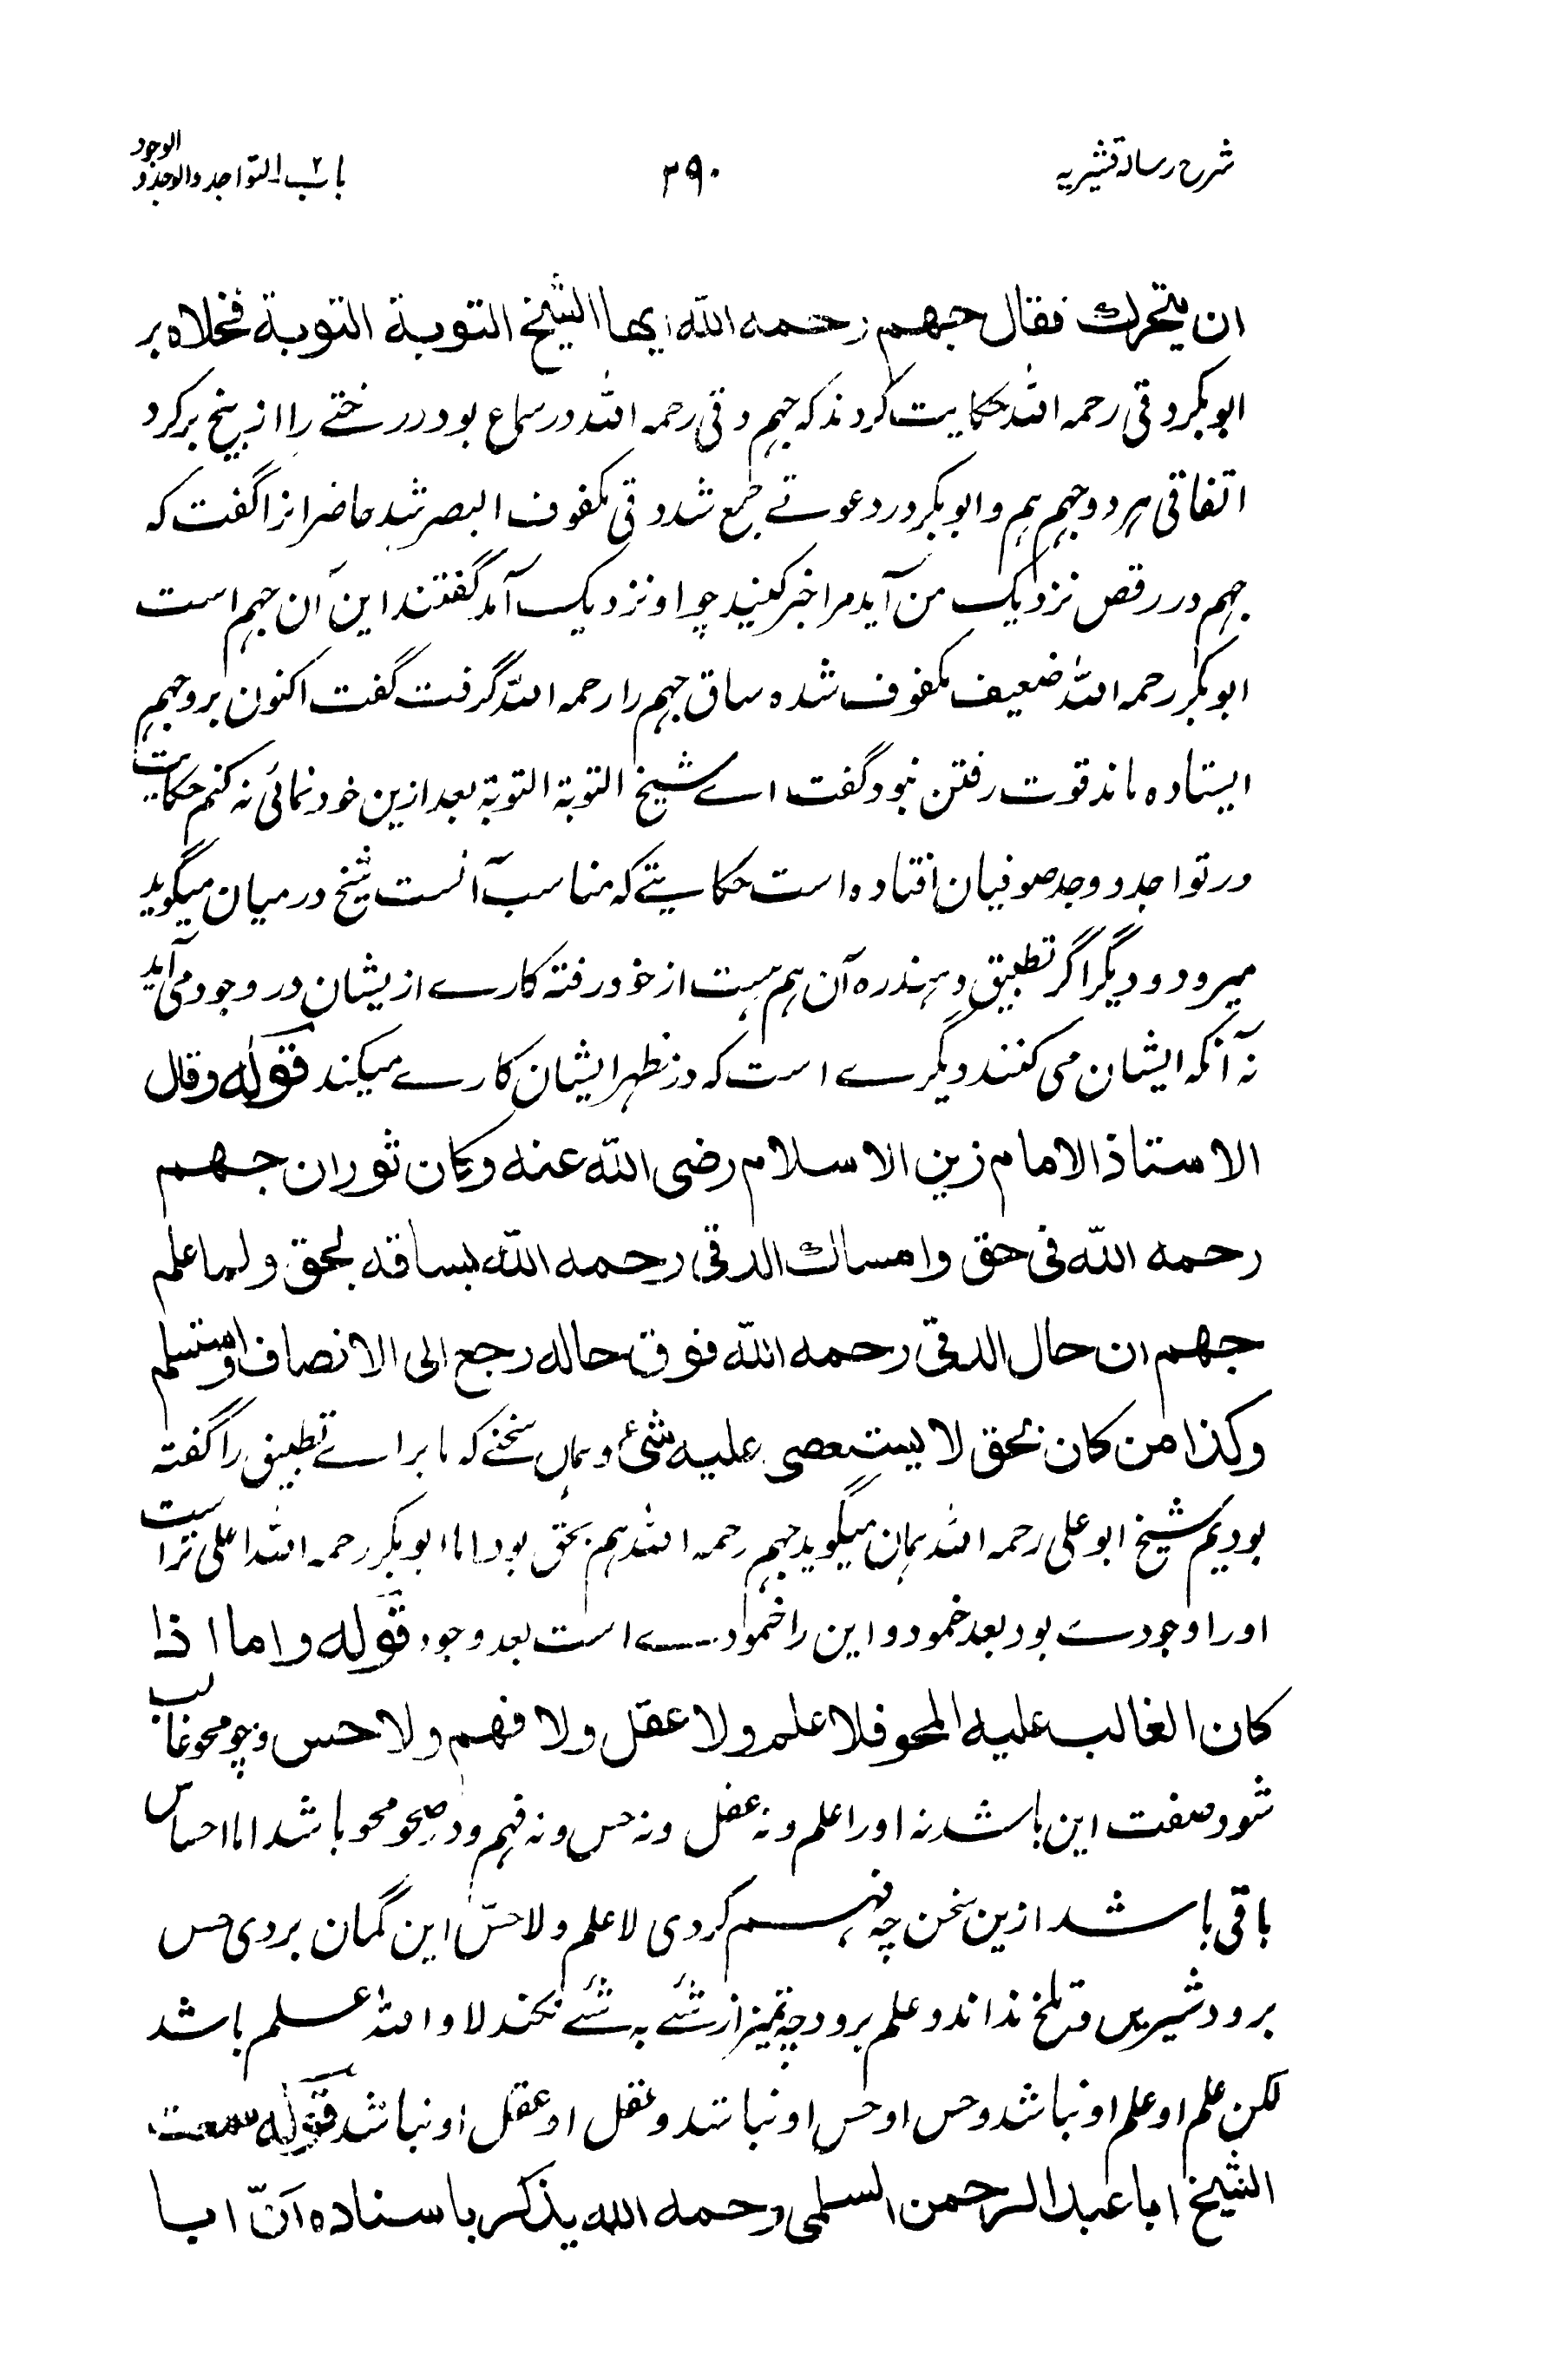 شرح رسالہ قشیریہ
۳۹۰
باب التواجد والوجد و الوجود
ان يتحرك فقال جهم رحمه الله ايها الشيخ التوبة التوبة فخلاه بر
ابوبکر دقی رحمہ اللہ حکایت کردند کہ جہم دقی رحمہ اللہ در سماع بود درختے را از بیخ بر کرد
اتفاقی ہر دو جہم ہم و ابوبکر در دعوتے جمع شد دقی مکفوف البصر شد حاضرانرا گفت کہ
جہم در رقص نزدیک من آید مرا خبر کنید چو او نزدیک آمد گفتند این آن جہم است
ابوبکر رحمہ اللہ ضعیف مکفوف شدہ ساق جہم را رحمہ اللہ گرفت گفت اکنون برو جہم
ایستادہ ماند قوت رفتن نبود گفت اے شیخ التوبۃ التوبۃ بعد ازین خود نمائی نہ کنم حکایت
در تواجد و وجد صوفیان افتادہ است حکایتے کہ مناسب آنست شیخ درمیان میگوید
میرود و دیگر اگر تطبیق دہند رہ آن ہم ہست از خود رفتہ کارے ازیشان در وجود می آید
نہ آنکہ ایشان می کنند دیگرے است کہ در مظہر ایشان کارے میکند قوله وقال
الاستاذ الامام زين الاسلام رضى الله عنه وكان ثوران جهم
رحمه الله فى حق وامساك الدقى رحمه الله بساقه بحق ولما علم
جهم ان حال الدقى رحمه الله فوق حاله رجع الى الانصاف واستسلم
وكذا من كان بحق لا يستعصى عليه شئ وہماں سخنے کہ ما براے تطبیق را گفتہ
بودیم شیخ ابو علی رحمہ اللہ ہمان میگوید جہم رحمہ اللہ ہم بحق بود اما ابوبکر رحمہ اللہ اعلی تر است
او را وجودے بود بعد خمود و این را خمودے است بعد وجود قوله واما اذا
كان الغالب عليه المحو فلا علم ولا عقل ولا فهم ولا حس و چو محو غالب
شود صفت این باشد نہ او را علم و نہ عقل و نہ حس و نہ فہم و در صحو محو باشد اما احساس
باقی باشد ازین سخن چہ فہم کردی لا علم ولا حسّ این گمان بردی حس
برود شیریں و تلخ نداند و علم برود چہ تمیز از شئے بہ شئے نکند لا واللہ علم باشد
لکن علم او علم او نباشد و حس او حس او نباشد و عقل او عقل او نباشد قوله سمعت
الشيخ ابا عبد الرحمن السلمى رحمه الله يذكر باسناده انّ ابا